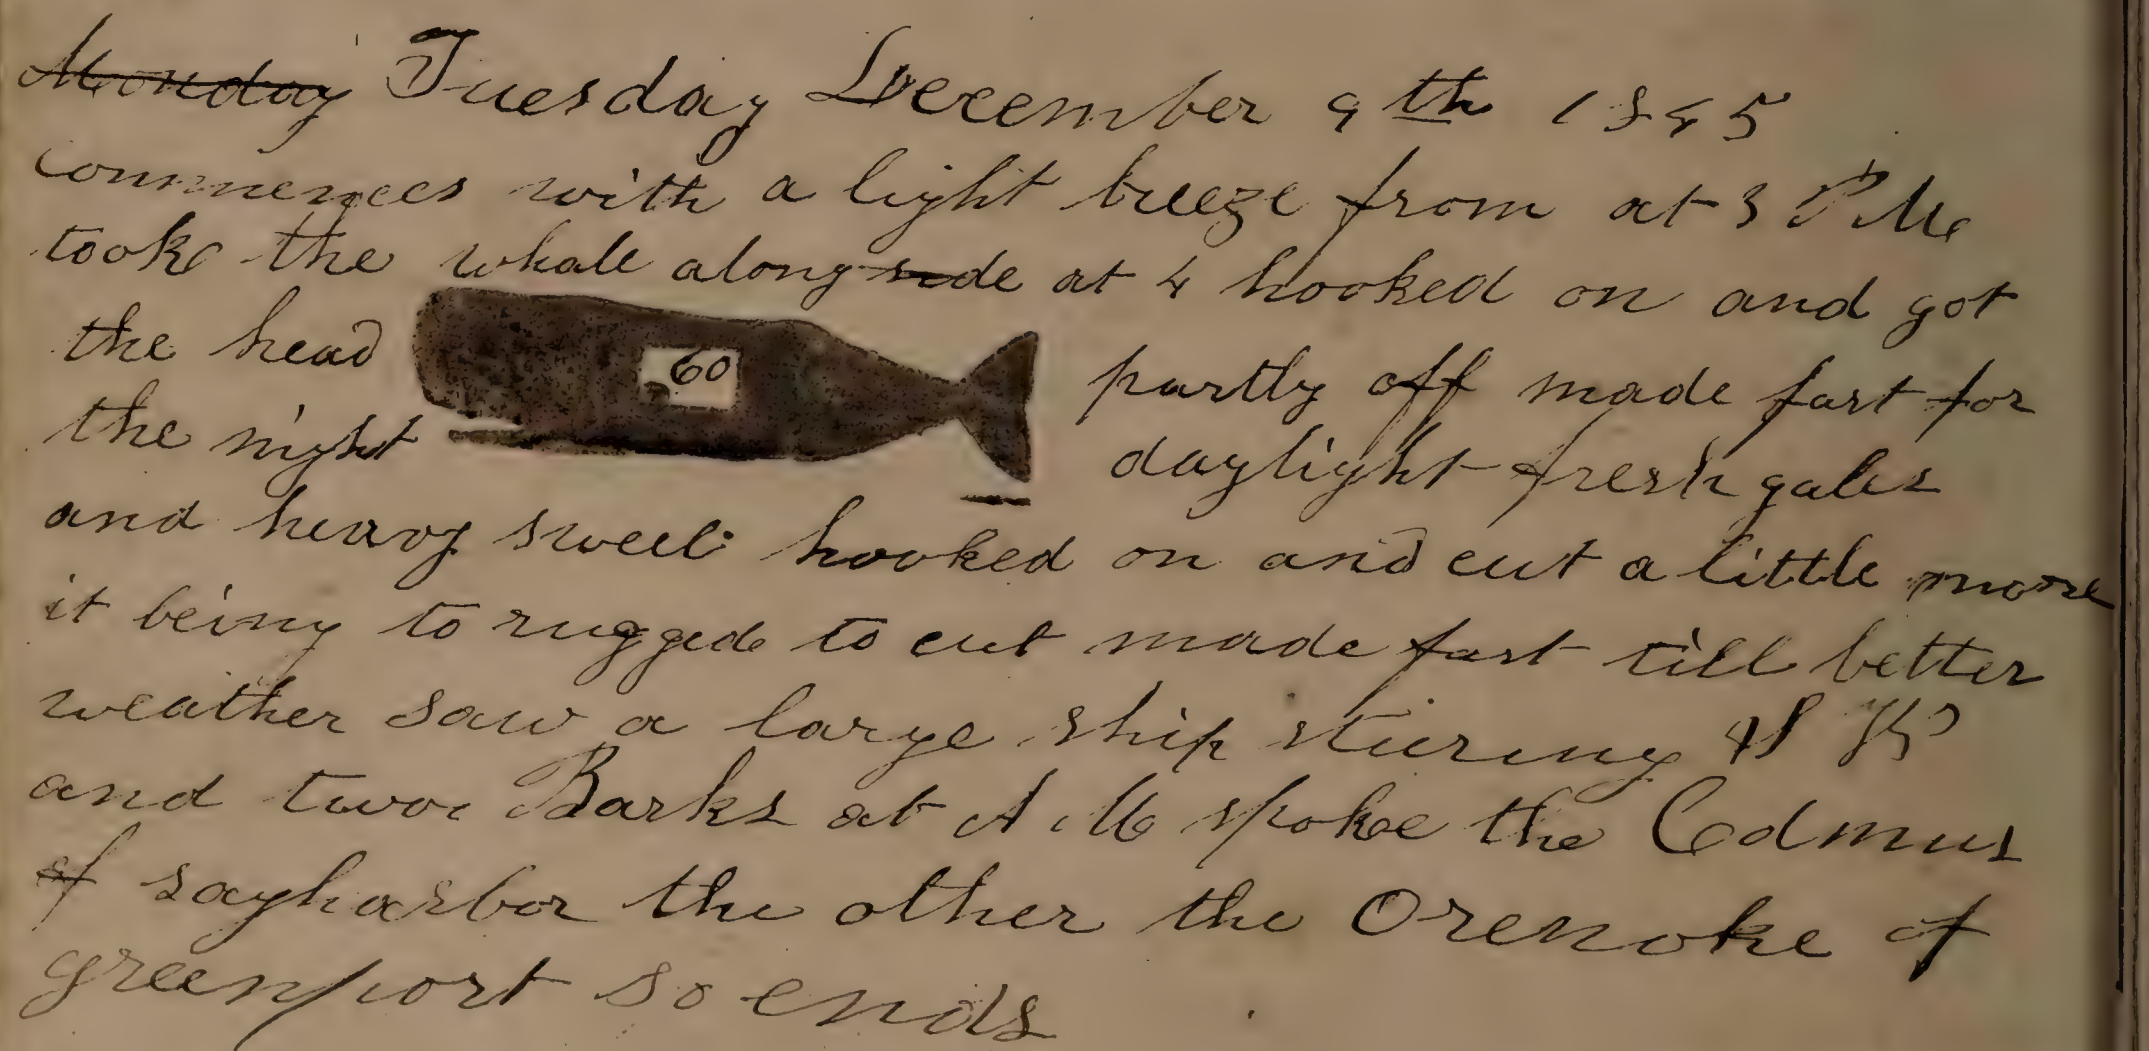 Monday Tuesday December 9th 1845
Commences with a light breeze from at 3 P.M.
tooke the whale alongside at 4 hooked on and got
the head 60 partly off made fast for
the night daylight fresh gales
and heavy swell hooked on and cut a little more
it being to rugged to cut made fast till better
weather saw a large ship stiering
and two Barks at A.M. spoke the Cadmus
of sagharbor the other the Orenoke of
greenport so ends